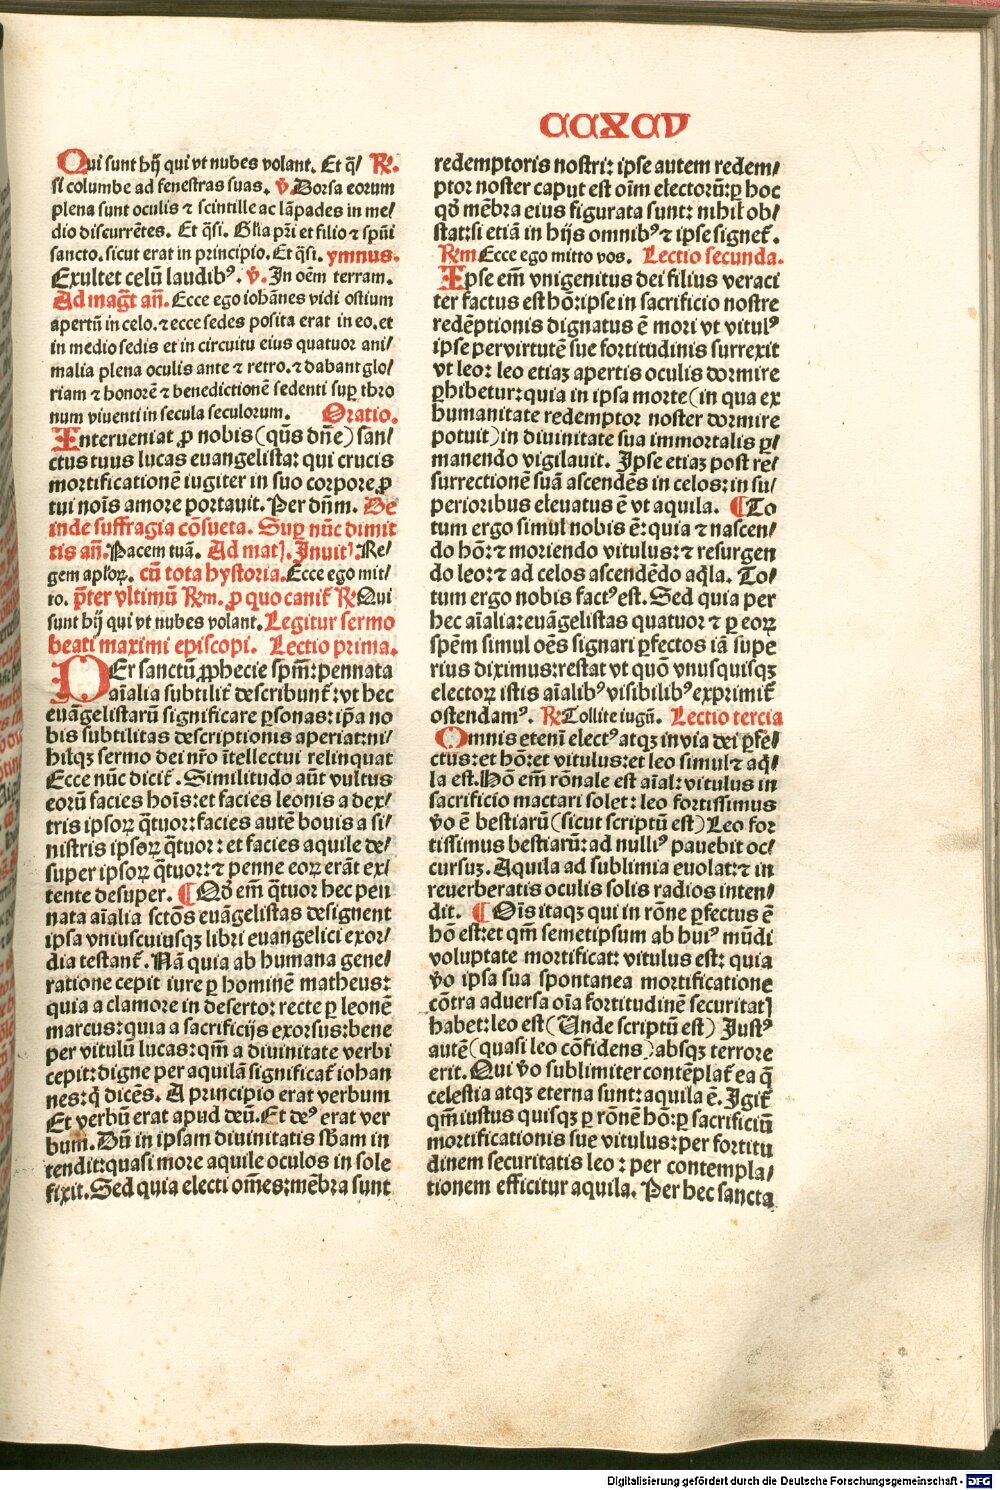 CCXCV
Qui sunt hij qui vt nubes volant. Et q̃/ ℟.
si columbe ad fenestras suas. ℣. Dorsa eorum
plena sunt oculis ⁊ scintille ac lãpades in me/
dio discurrẽtes. Et q̃si. Gl̃ia pr̃i et filio ⁊ spũi
sancto. sicut erat in principio. Et q̃si. ymnus.
Exultet celũ laudibꝰ. ℣. In oẽm terram.
Ad mag̃t añ. Ecce ego iohãnes vidi ostium
apertũ in celo. ⁊ ecce sedes posita erat in eo. et
in medio sedis et in circuitu eius quatuor ani/
malia plena oculis ante ⁊ retro. ⁊ dabant glo/
riam ⁊ honorẽ ⁊ benedictionẽ sedenti suꝑ thro
num viuenti in secula seculorum. Oratio.
Interueniat ꝓ nobis (q̃s dñe) san/
ctus tuus lucas euangelista: qui crucis
mortificationẽ iugiter in suo corpore ꝓ
tui noĩs amore portauit. Per dñm. De
inde suffragia cõsueta. Suꝑ nũc dimit
tis añ. Pacem tuã. Ad matꝭ. Inuitꝭ. Re/
gem apl̃oꝝ. cũ tota hystoria. Ecce ego mit/
to. p̃ter vltimũ ℟m. ꝓ quo canit᷑ ℟ Qui
sunt hij qui vt nubes volant. Legitur sermo
beati maximi episcopi. Lectio prima.
PEr sanctũ ꝓphecie spm̃: pennata
aĩalia subtilit᷑ describunt᷑: vt hec
euãgelistarũ significare ꝑsonas: ip̃a no
bis subtilitas descriptionis aperiat: ni/
hilqꝫ sermo dei nr̃o ĩtellectui relinquat
Ecce nũc dicit᷑. Similitudo aũt vultus
eorũ facies hoĩs: et facies leonis a dex/
tris ipsoꝝ q̃tuor: facies autẽ bouis a si/
nistris ipsoꝝ q̃tuor: et facies aquile de/
super ipsoꝝ q̃tuor: ⁊ penne eoꝝ erãt ex/
tente desuper. ¶ Qđ em̃ q̃tuor hec pen
nata aĩalia sctõs euãgelistas designent
ipsa vniuscuiusqꝫ libri euangelici exor/
dia testant᷑. Nã quia ab humana gene/
ratione cepit iure ꝑ hominẽ matheus:
quia a clamore in deserto: recte ꝑ leonẽ
marcus: quia a sacrificijs exorsus: bene
per vitulũ lucas: qm̃ a diuinitate verbi
cepit: digne per aquilã significat᷑ iohan
nes: q̃ dicẽs. A principio erat verbum
Et verbũ erat apud deũ. Et deꝰ erat ver
bum. Dũ in ipsam diuinitatis sb̃am in
tendit: quasi more aquile oculos in sole
fixit. Sed quia electi om̃es: mẽbra sunt
redemptoris nostri: ipse autem redem/
ptor noster caput est oĩm electorũ: ꝑ hoc
qđ mẽbra eius figurata sunt: nihil ob/
stat: si etiã in hijs omnibꝰ ⁊ ipse signet᷑.
℟m Ecce ego mitto vos. Lectio secunda.
Ipse em̃ vnigenitus dei filius veraci
ter factus est hõ: ipse in sacrificio nostre
redẽptionis dignatus ẽ mori vt vitulꝰ
ipse per virtutẽ sue fortitudinis surrexit
vt leo: leo etiaꝫ apertis oculis dormire
ꝑhibetur: quia in ipsa morte (in qua ex
humanitate redemptor noster dormire
potuit) in diuinitate sua immortalis ꝑ/
manendo vigilauit. Ipse etiaꝫ post re/
surrectionẽ suã ascendẽs in celos: in su/
perioribus eleuatus ẽ vt aquila. ¶ To
tum ergo simul nobis ẽ: quia ⁊ nascen/
do hõ: ⁊ moriendo vitulus: ⁊ resurgen
do leo: ⁊ ad celos ascendẽdo aq̃la. To/
tum ergo nobis factꝰ est. Sed quia per
hec aĩalia: euãgelistas quatuor ⁊ ꝑ eoꝝ
spẽm simul oẽs signari ꝑfectos iã supe
rius diximus: restat vt quõ vnusquisqꝫ
electoꝝ istis aĩalibꝰ visibilibꝰ exprimit᷑
ostendamꝰ. ℟ Tollite iugũ. Lectio tercia
Omnis etenĩ electꝰ atqꝫ in via dei ꝑfe/
ctus: et hõ: et vitulus: et leo simul ⁊ aq̃/
la est. Hõ em̃ rõnale est aĩal: vitulus in
sacrificio mactari solet: leo fortissimus
v̊o ẽ bestiarũ (sicut scriptũ est) Leo for
tissimus bestiarũ: ad nulliꝰ pauebit oc/
cursuꝫ. Aquila ad sublimia euolat: ⁊ in
reuerberatis oculis solis radios inten/
dit. ¶ Oĩs itaqꝫ qui in rõne ꝑfectus ẽ
hõ est: et qm̃ semetipsum ab huiꝰ mũdi
voluptate mortificat: vitulus est: quia
v̊o ipsa sua spontanea mortificatione
cõtra aduersa oĩa fortitudinẽ securitatꝭ
habet: leo est (Unde scriptũ est) Justꝰ
autẽ (quasi leo cõfidens) absqꝫ terrore
erit. Qui v̊o sublimiter contẽplat᷑ ea q̃
celestia atqꝫ eterna sunt: aquila ẽ. Igit᷑
qm̃ iustus quisqꝫ ꝑ rõnẽ hõ: ꝑ sacrificiũ
mortificationis sue vitulus: per fortitu
dinem securitatis leo: per contempla/
tionem efficitur aquila. Per hec sancta
Digitalisierung gefördert durch die Deutsche Forschungsgemeinschaft - DFG